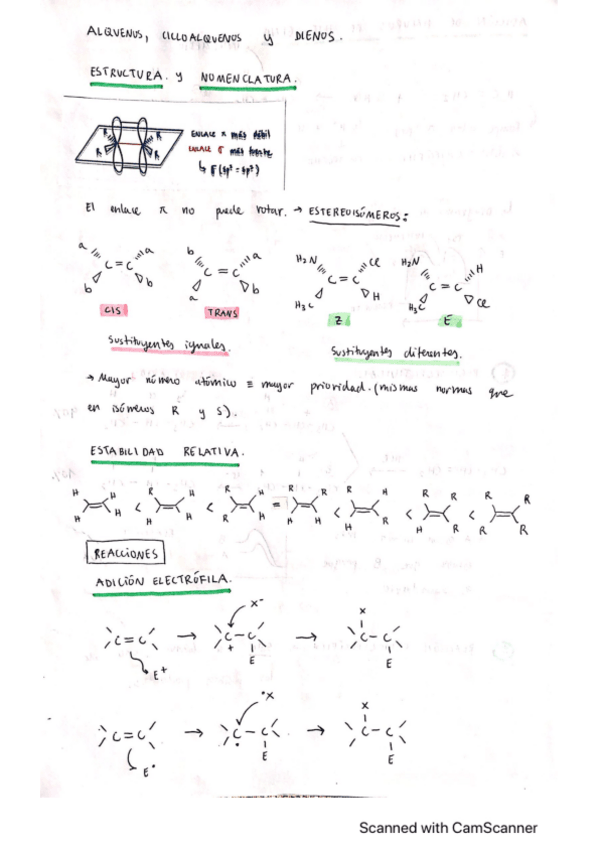 ALQUENOS, CICLOALQUENOS y DIENOS.
ESTRUCTURA. y NOMENCLATURA.
R R
R R
ENLACE π más débil
ENLACE σ más fuerte
↳ F(sp² - sp²)
El enlace π no puede rotar. → ESTEREOISÓMEROS:
a a b a H₂N Cl H₂N H
C=C C=C C=C C=C
b b a b H₃C H H₃C Cl
CIS TRANS Z E
Sustituyentes iguales. Sustituyentes diferentes.
→ Mayor número atómico ≡ mayor prioridad. (mismas normas que
en isómeros R y S).
ESTABILIDAD RELATIVA.
H H R H R H R R R H R R R R
< < = < < <
H H H H R H H H H R H R R R
REACCIONES
ADICIÓN ELECTRÓFILA.
X⁻ X
C=C → C-C → C-C
+
E⁺ E E
•X X
C=C → C-C → C-C
•
E• E E
Scanned with CamScanner